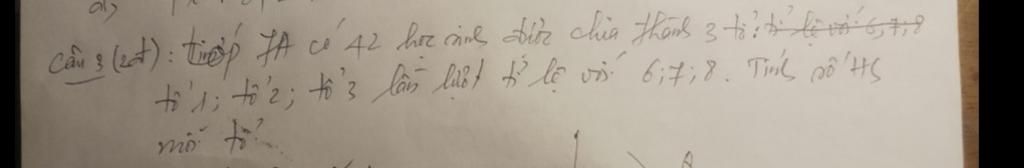 Câu 3 (2đ): lớp 7A có 42 học sinh được chia thành 3 tổ: tỉ lệ với 6; 7; 8
tổ 1; tổ 2; tổ 3 lần lượt tỉ lệ với 6; 7; 8. Tính số HS
mỗi tổ.